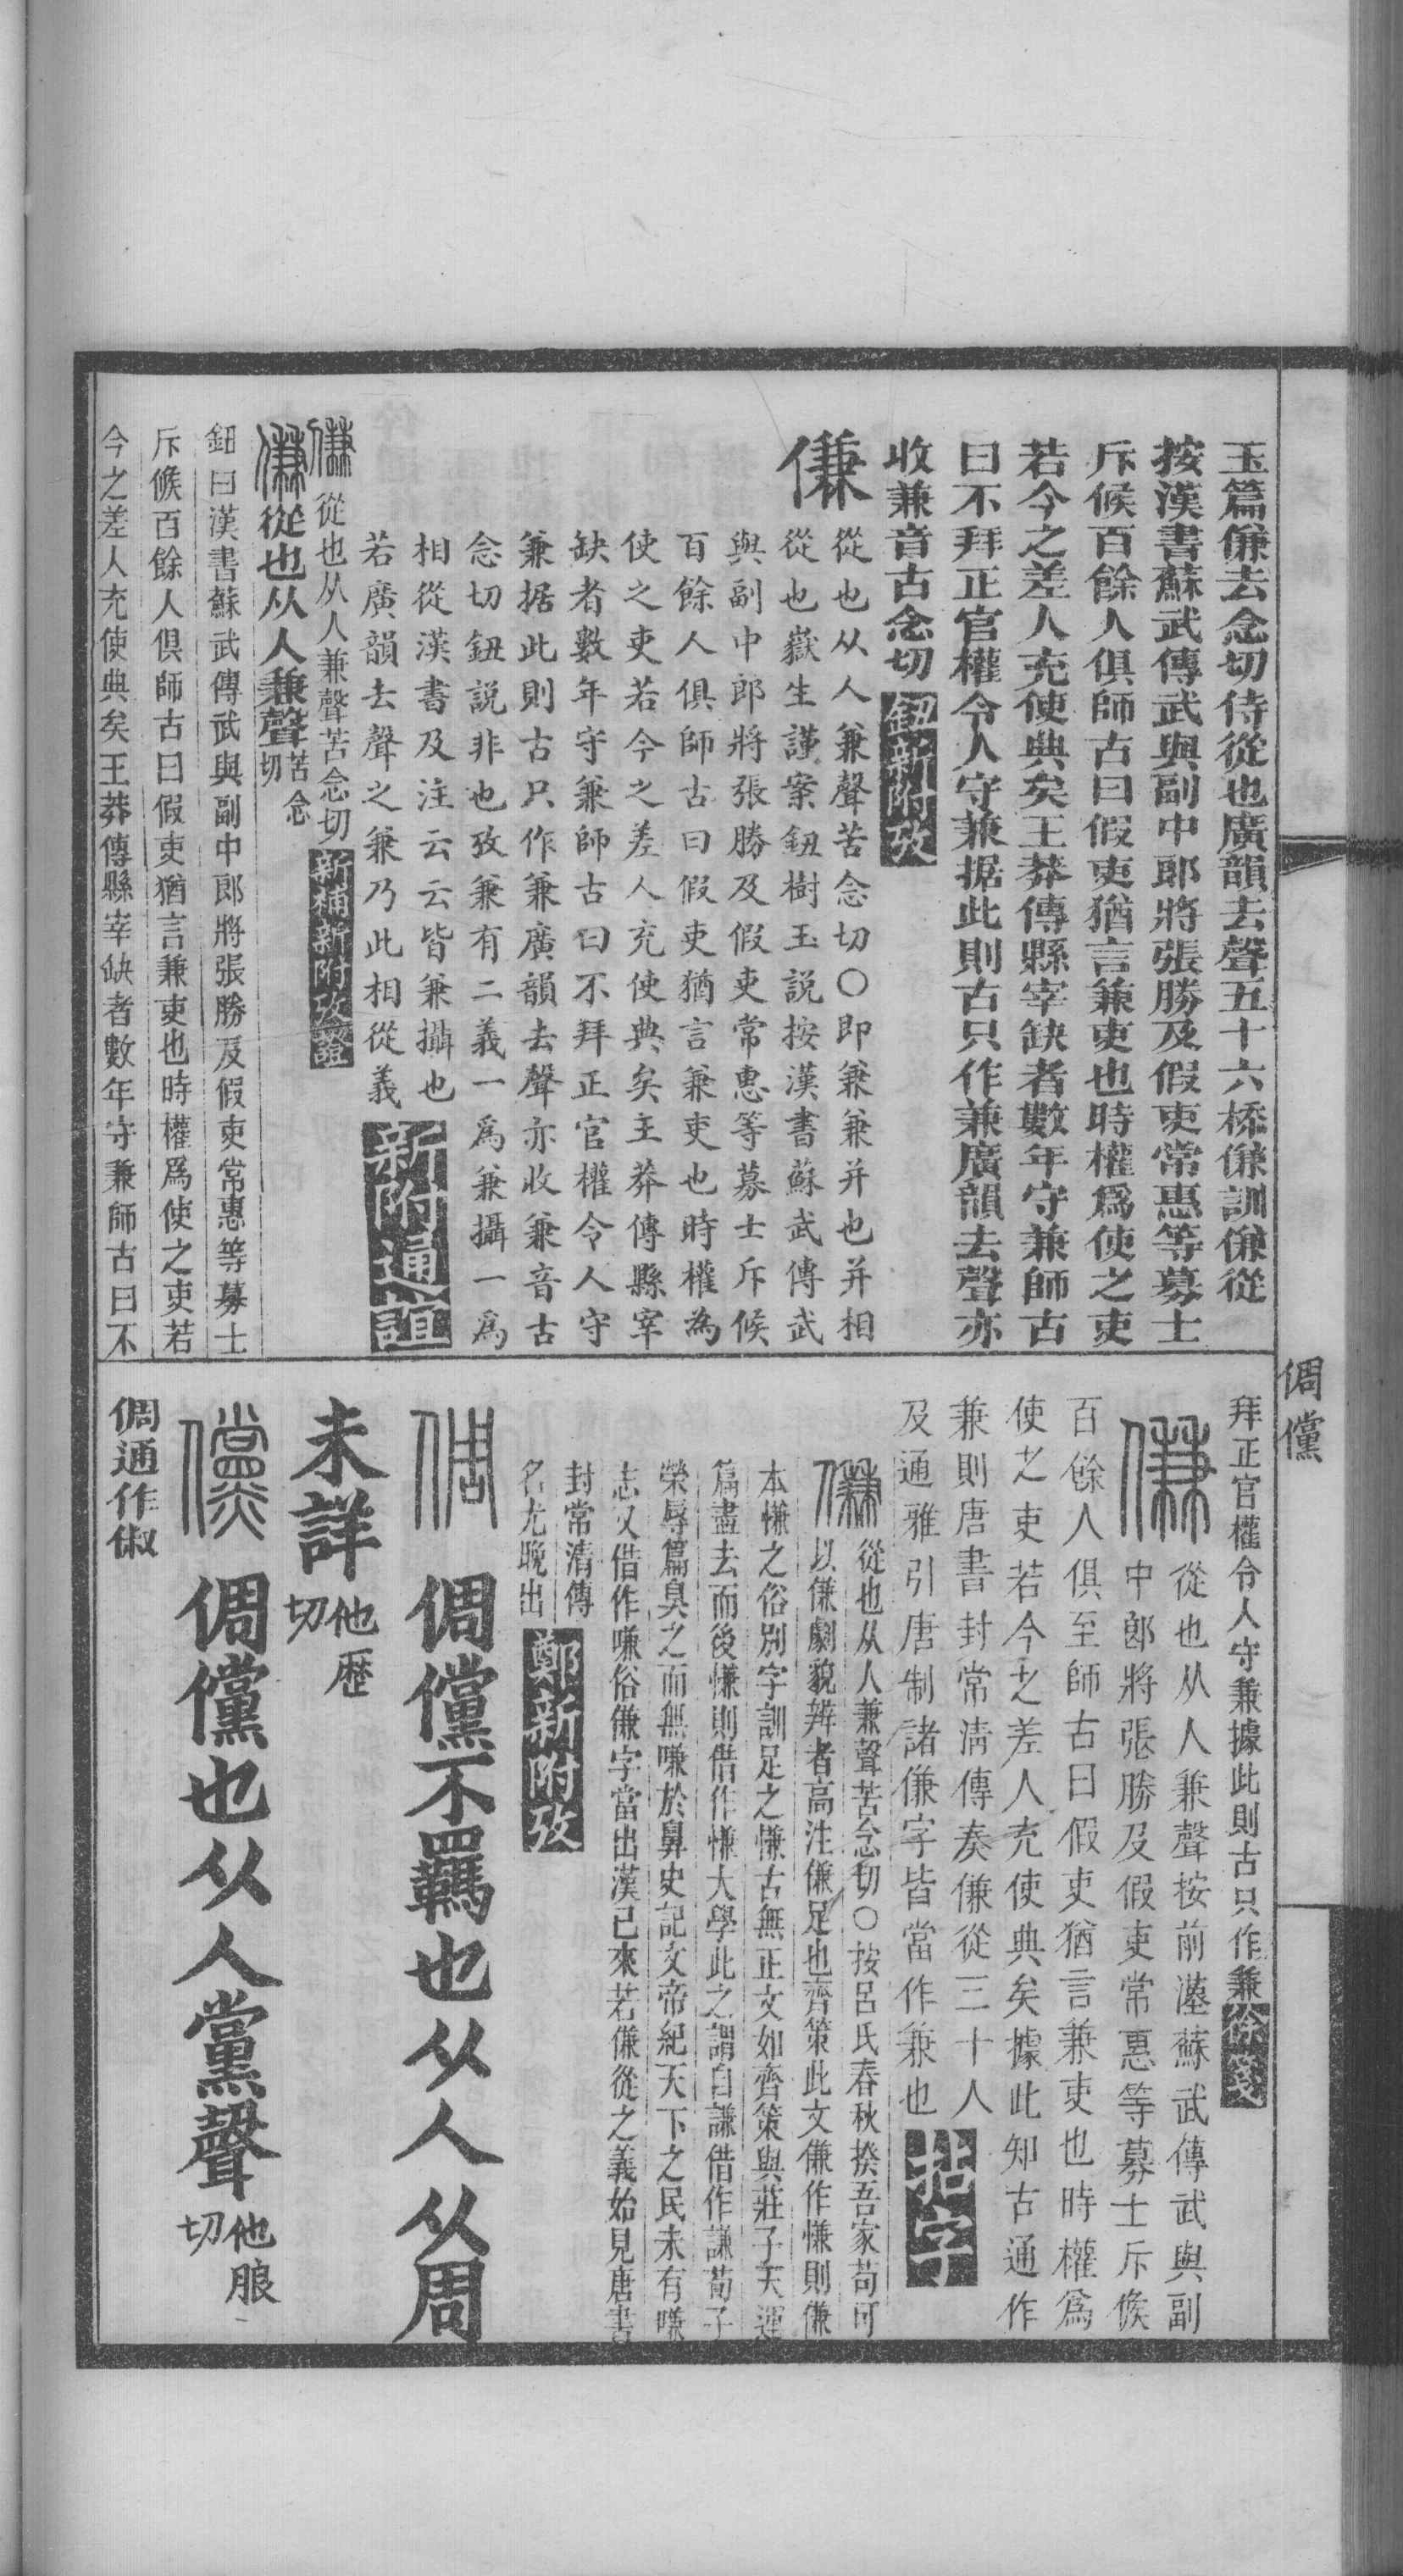 玉篇傔去念切侍從也廣韻去聲五十六㮇傔訓傔從
按漢書蘇武傳武與副中郎將張勝及假吏常惠等募士
斥候百餘人俱師古曰假吏猶言兼吏也時權爲使之吏
若今之差人充使典矣王莽傳縣宰缺者數年守兼師古
曰不拜正官權令人守兼据此則古只作兼廣韻去聲亦
收兼音古念切 鈕新附攷
傔 從也从人兼聲苦念切○即兼兼并也并相
從也嶽生謹案鈕樹玉説按漢書蘇武傳武
與副中郎將張勝及假吏常惠等募士斥候
百餘人俱師古曰假吏猶言兼吏也時權為
使之吏若今之差人充使典矣王莽傳縣宰
缺者數年守兼師古曰不拜正官權令人守
兼据此則古只作兼廣韻去聲亦收兼音古
念切鈕説非也攷兼有二義一爲兼攝一爲
相從漢書及注云云皆兼攝也
若廣韻去聲之兼乃此相從義 新附通誼
傔 從也从人兼聲苦念切 新補新附攷證
傔從也从人兼聲苦念切
鈕曰漢書蘇武傳武與副中郎將張勝及假吏常惠等募士
斥候百餘人俱師古曰假吏猶言兼吏也時權爲使之吏若
今之差人充使典矣王莽傳縣宰缺者數年守兼師古曰不
倜儻
拜正官權令人守兼據此則古只作兼 徐箋
傔 從也从人兼聲按前漢蘇武傳武與副
中郎將張勝及假吏常惠等募士斥候
百餘人俱至師古曰假吏猶言兼吏也時權爲
使之吏若今之差人充使典矣據此知古通作
兼則唐書封常清傳奏傔從三十人
及通雅引唐制諸傔字皆當作兼也 拈字
傔 從也从人兼聲苦念切○按呂氏春秋揆吾家苟可
以傔劇貌辨者高注傔足也齊策此文傔作慊則傔
本慊之俗別字訓足之慊古無正文如齊策與莊子天運
篇盡去而後慊則借作慊大學此之謂自謙借作謙荀子
榮辱篇臭之而無嗛於鼻史記文帝紀天下之民未有嗛
志又借作嗛俗傔字當出漢已來若傔從之義始見唐書
封常清傳
名尤晚出 鄭新附攷
倜 倜儻不羈也从人从周
未詳他歷切
儻 倜儻也从人黨聲他朖切
倜通作俶